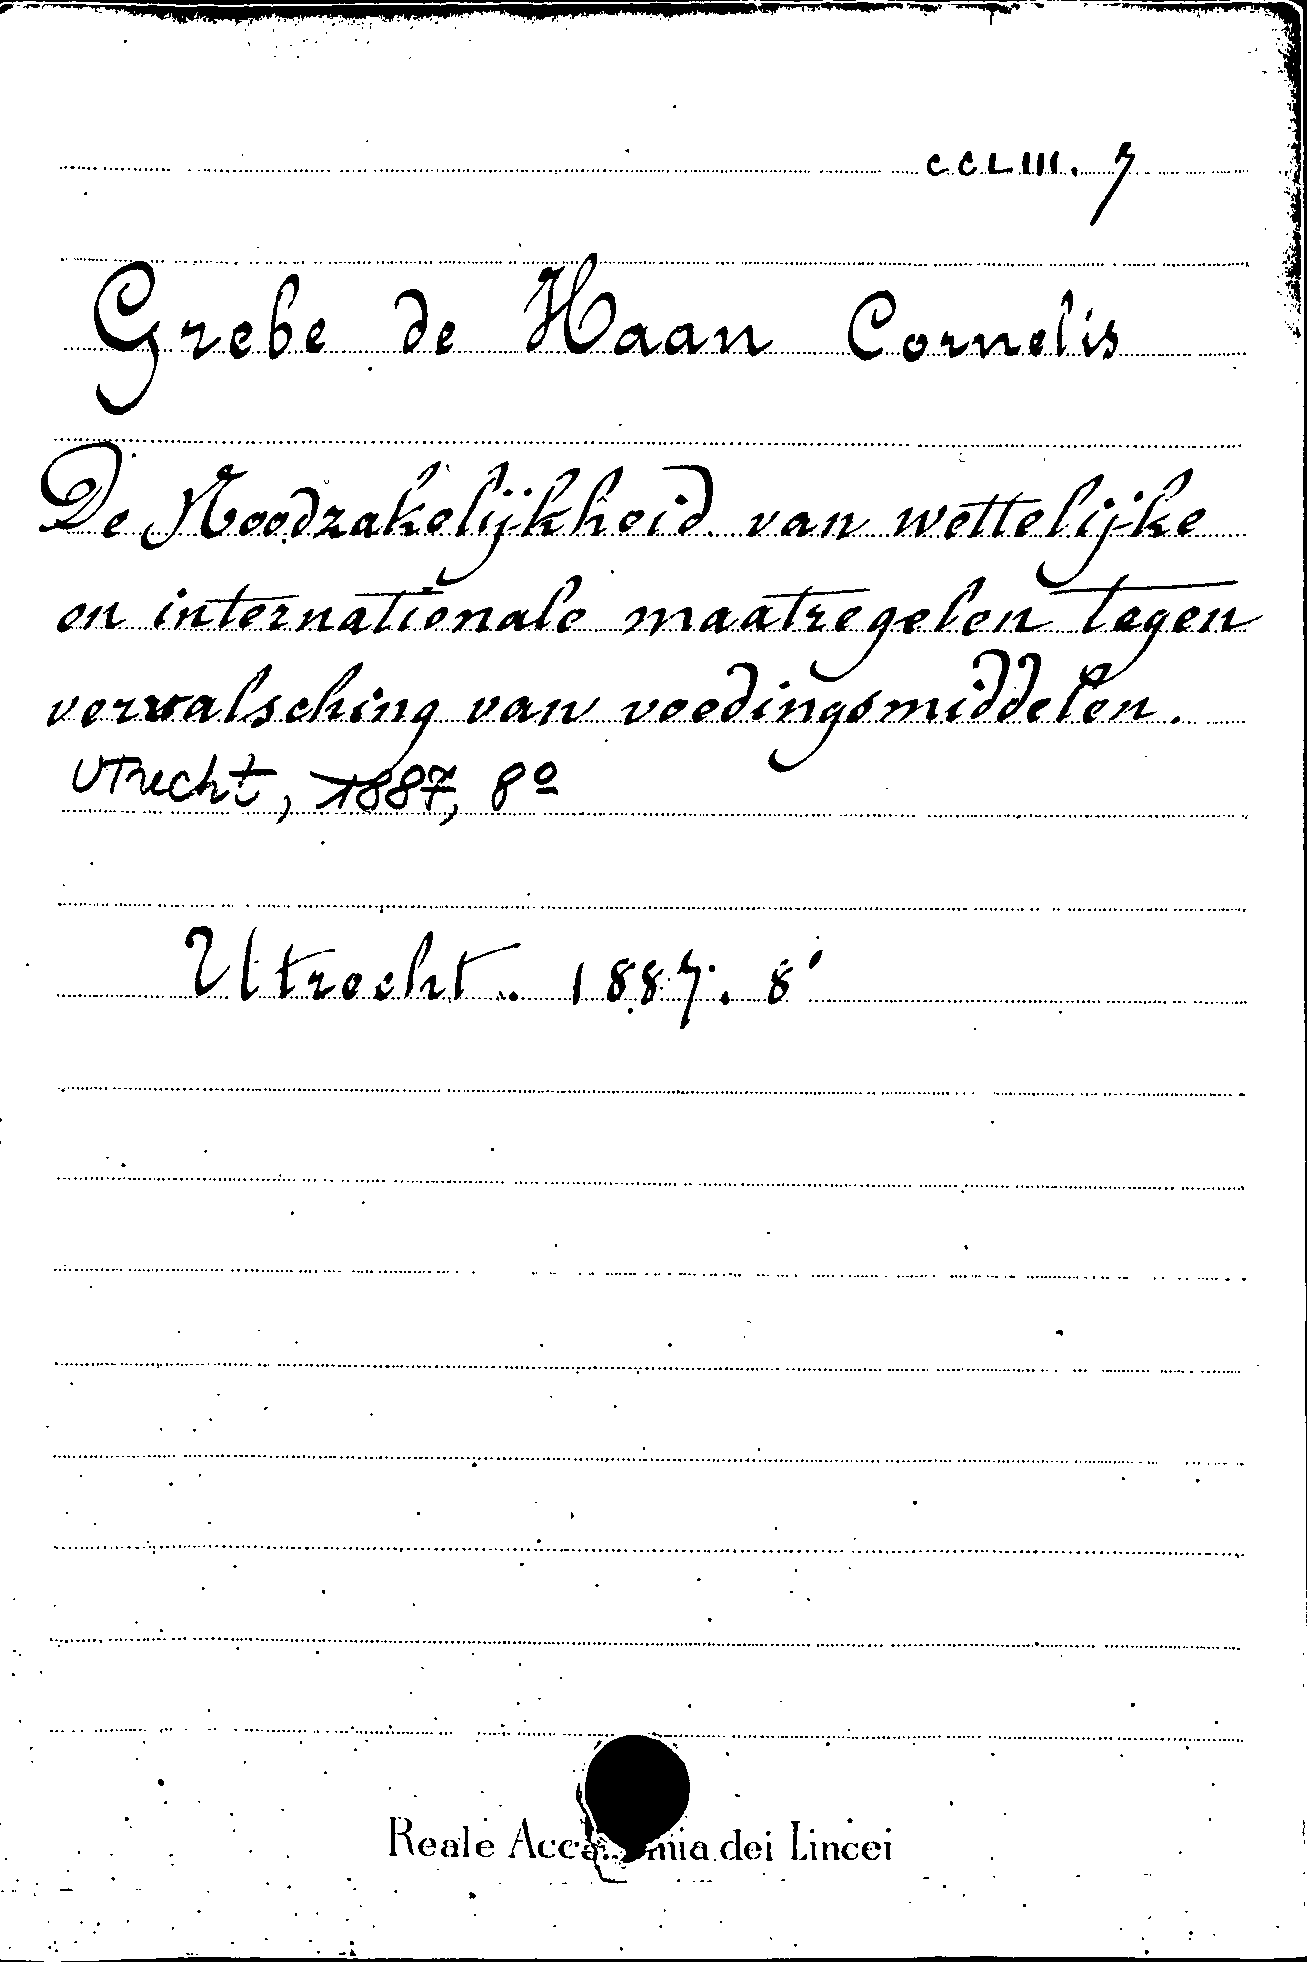 CCLIII. 7
Grebe de Haan Cornelis
De Noodzakelijkheid van wettelijke
en internationale maatregelen tegen
vervalsching van voedingsmiddelen.
Utrecht, 1887, 8º
Utrecht. 1887. 8°
Reale Accademia dei Lincei